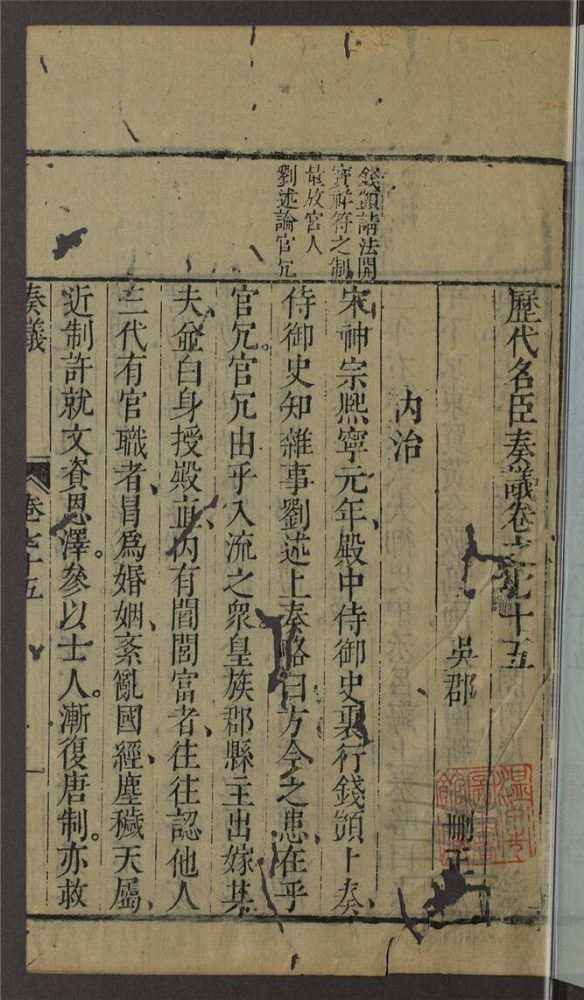 歷代名臣奏議卷之七十五
吳郡
刪正
內治
宋神宗熙寧元年殿中侍御史裏行錢顗上奏
侍御史知雜事劉述上奏略曰方今之患在乎
官冗官冗由乎入流之衆皇族郡縣主出嫁其
夫並白身授殿直內有閭閻富者往往認他人
三代有官職者冒爲婚姻紊亂國經塵穢天屬
近制許就文資恩澤參以士人漸復唐制亦救
錢顗請法開
寶祥符之制
放宮人
劉述論官冗
奏議
卷七十五
一